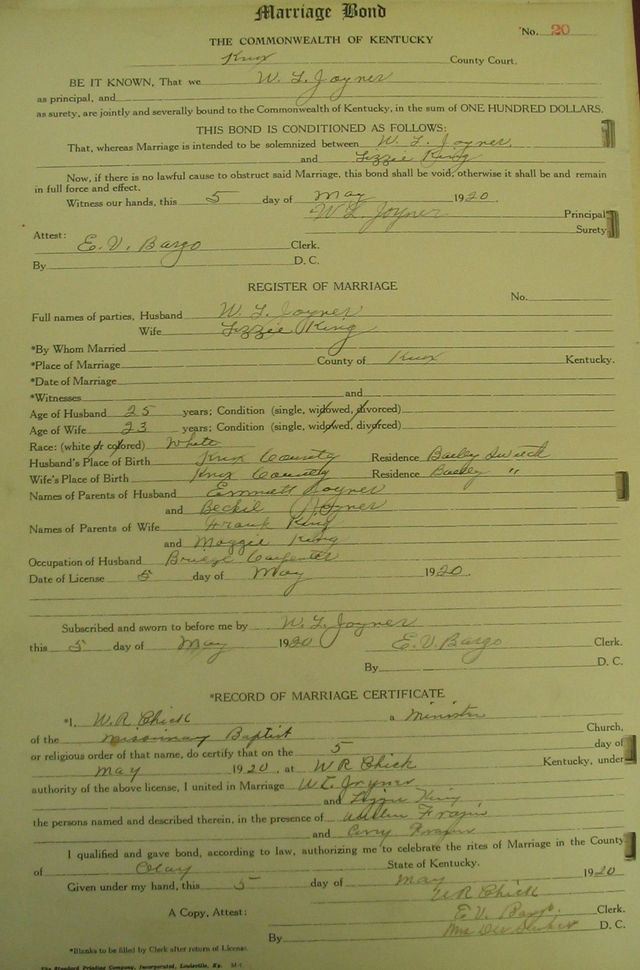 Marriage Bond
No. 20
THE COMMONWEALTH OF KENTUCKY
Knox County Court.
BE IT KNOWN, That we W. L. Joyner
as principal, and
as surety, are jointly and severally bound to the Commonwealth of Kentucky, in the sum of ONE HUNDRED DOLLARS.
THIS BOND IS CONDITIONED AS FOLLOWS:
That, whereas Marriage is intended to be solemnized between W. L. Joyner
and Lizzie King
Now, if there is no lawful cause to obstruct said Marriage, this bond shall be void, otherwise it shall be and remain
in full force and effect.
Witness our hands, this 5 day of May 1920.
W L Joyner Principal
Surety
Attest:
E. V. Bargo Clerk.
By D. C.
REGISTER OF MARRIAGE
No.
Full names of parties, Husband W. L. Joyner
Wife Lizzie King
*By Whom Married
*Place of Marriage County of Knox Kentucky.
*Date of Marriage
*Witnesses and
Age of Husband 25 years; Condition (single, widowed, divorced)
Age of Wife 23 years; Condition (single, widowed, divorced)
Race: (white or colored) White
Husband's Place of Birth Knox County Residence Bailey Switch
Wife's Place of Birth Knox County Residence Bailey "
Names of Parents of Husband Emmett Joyner
and Joyner
Names of Parents of Wife Frank King
and Maggie King
Occupation of Husband Bridge Carpenter
Date of License 5 day of May 1920.
Subscribed and sworn to before me by W. L. Joyner
this 5 day of May 1920 E. V. Bargo Clerk.
By D. C.
*RECORD OF MARRIAGE CERTIFICATE
*I, W. R Chick a Minister
of the Missionary Baptist Church,
or religious order of that name, do certify that on the 5 day of
May 1920, at W R Chick Kentucky, under
authority of the above license, I united in Marriage W. L. Joyner
and Lizzie King
the persons named and described therein, in the presence of
and
I qualified and gave bond, according to law, authorizing me to celebrate the rites of Marriage in the County
of Clay State of Kentucky.
Given under my hand, this 5 day of May 1920
W R Chick
A Copy, Attest: E. V. Bargo Clerk.
By D. C.
*Blanks to be filled by Clerk after return of License.
The Standard Printing Company, Incorporated, Louisville, Ky.